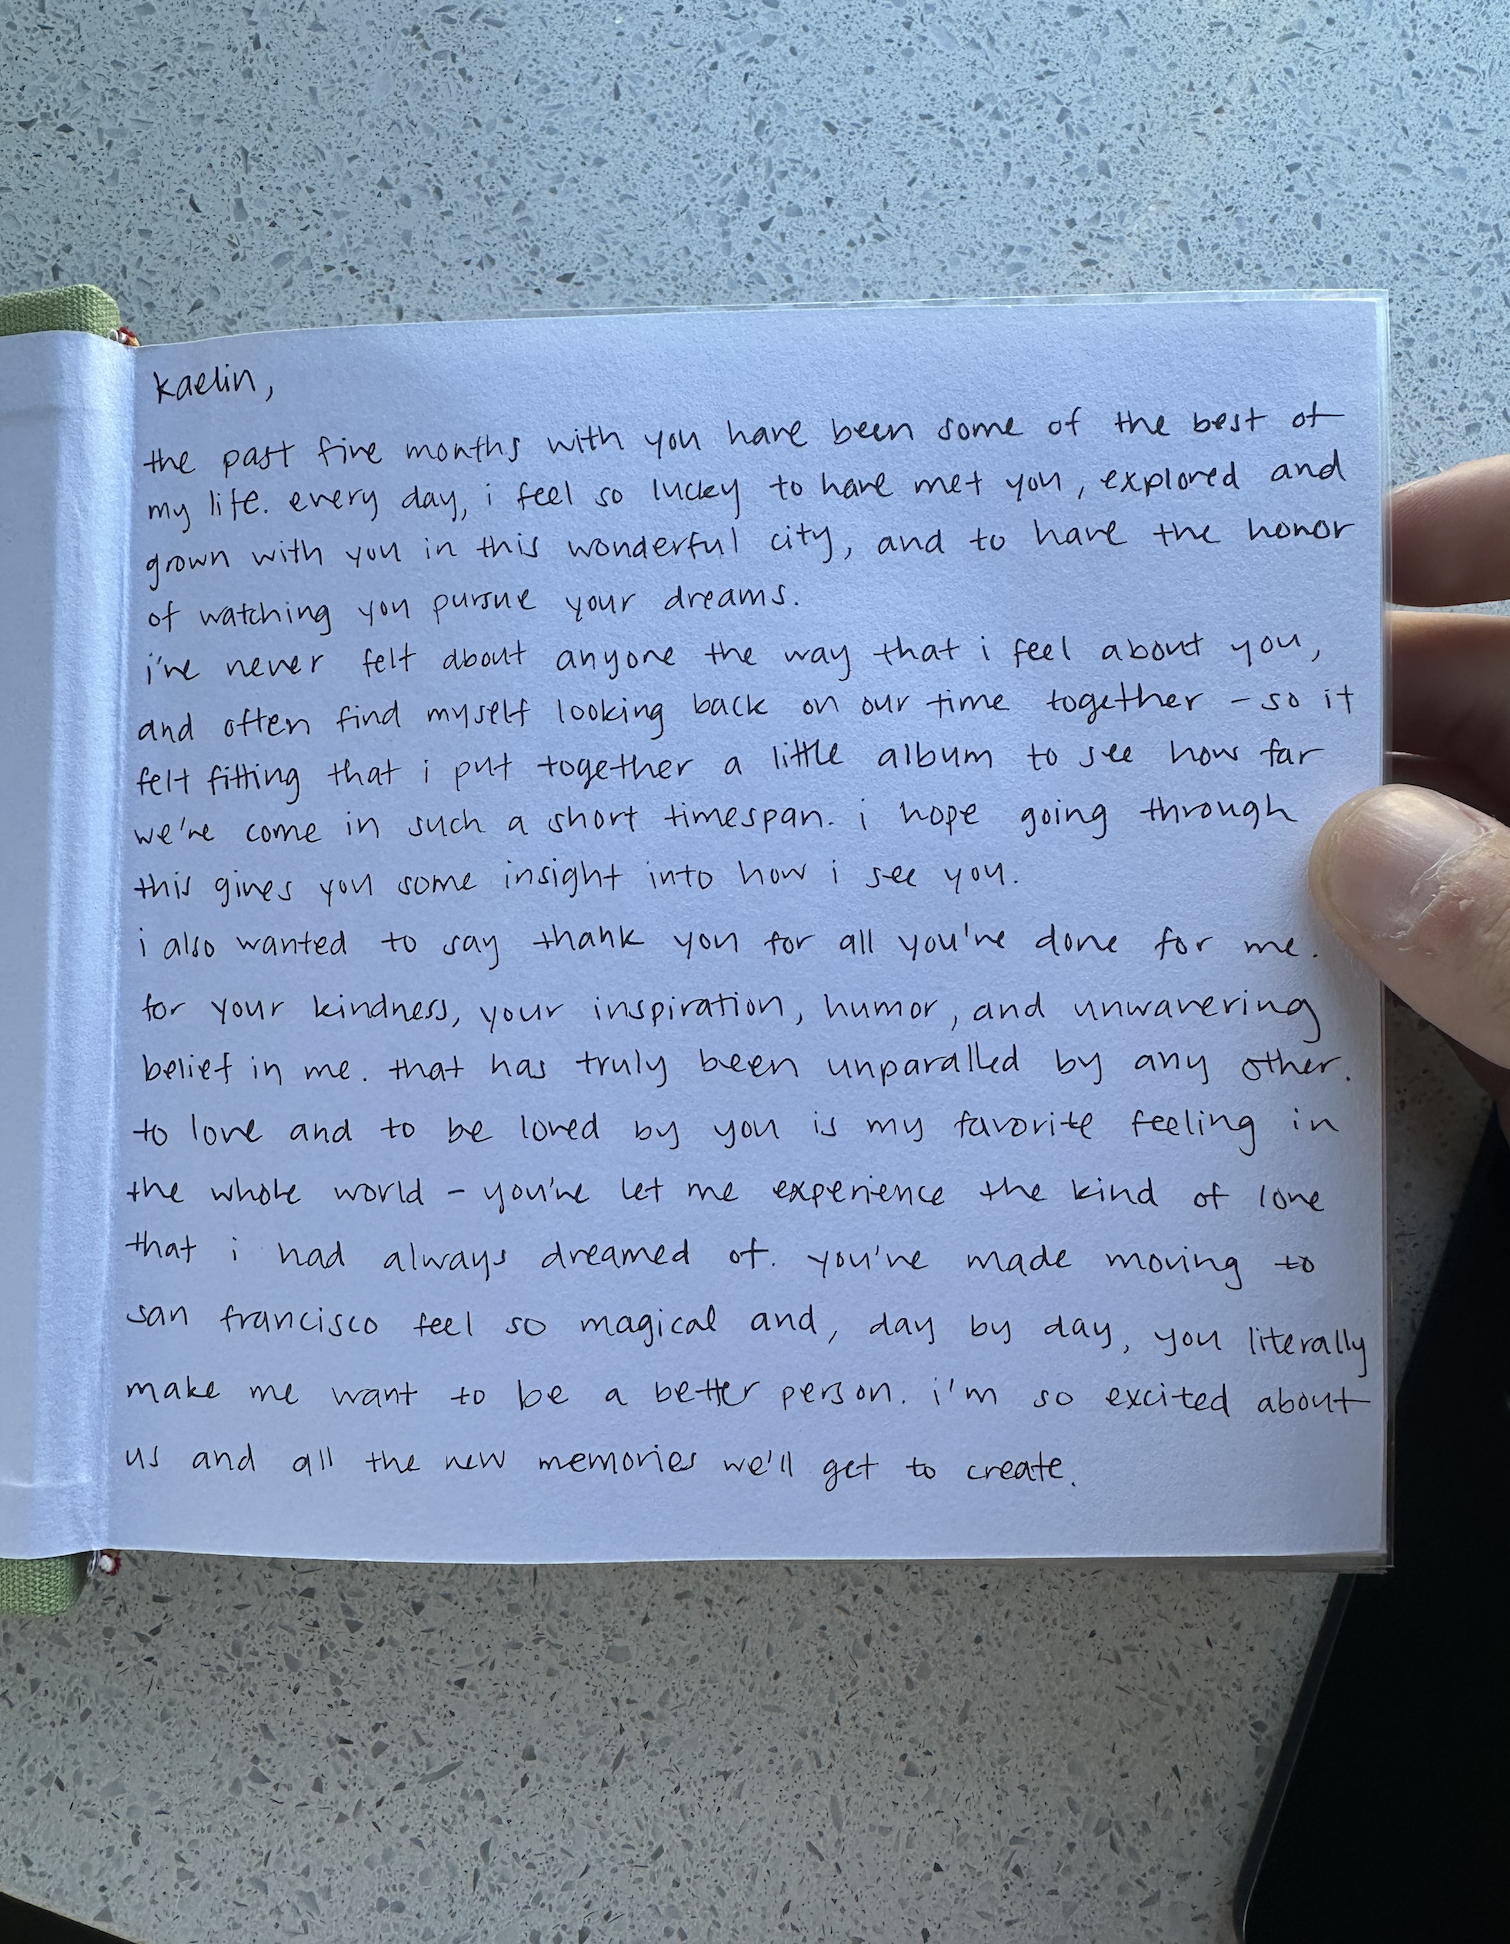 kaelin,
the past five months with you have been some of the best of
my life. every day, i feel so lucky to have met you, explored and
grown with you in this wonderful city, and to have the honor
of watching you pursue your dreams.
i've never felt about anyone the way that i feel about you,
and often find myself looking back on our time together - so it
felt fitting that i put together a little album to see how far
we've come in such a short timespan. i hope going through
this gives you some insight into how i see you.
i also wanted to say thank you for all you've done for me.
for your kindness, your inspiration, humor, and unwavering
belief in me. that has truly been unparalled by any other.
to love and to be loved by you is my favorite feeling in
the whole world - you've let me experience the kind of love
that i had always dreamed of. you've made moving to
san francisco feel so magical and, day by day, you literally
make me want to be a better person. i'm so excited about
us and all the new memories we'll get to create.